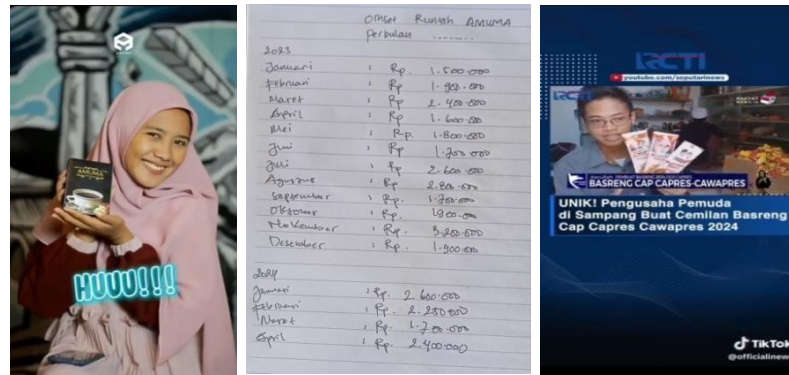 AMUMA
HUUU!!!
Omset Rumah AMUMA
perbulan ........
2023
Januari : Rp. 1.500.000
Februari : Rp 1.900.000
Maret : Rp 2.400.000
April : Rp 1.600.000
Mei : Rp. 1.800.000
Juni : Rp 1.700.000
Juli : Rp 2.600.000
Agustus : Rp 2.800.000
September : Rp. 1.700.000
Oktober : Rp.
November : Rp. 3.200.000
Desember : Rp. 1.900.000
2024
Januari : Rp. 2.600.000
Februari : Rp. 2.250.000
Maret : Rp. 1.700.000
April : Rp. 2.400.000
RCTI
youtube.com/seputarinews
RCTI
BASRENG CAP CAPRES-CAWAPRES
UNIK! Pengusaha Pemuda
di Sampang Buat Cemilan Basreng
Cap Capres Cawapres 2024
TikTok
@officialinew